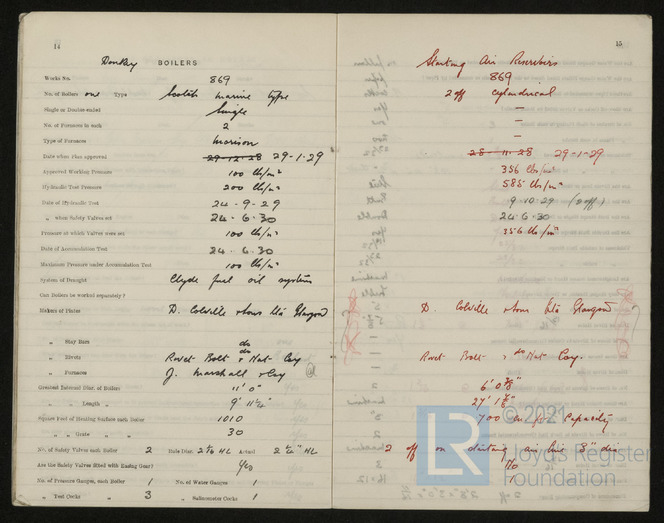 14
Donkey BOILERS
Works No. 869
No. of Boilers one Type Scotch marine type
Single or Double-ended Single
No. of Furnaces in each 2
Type of Furnaces Morison
Date when Plan approved 29-12-28 29-1-29
Approved Working Pressure 100 lbs/in²
Hydraulic Test Pressure 200 lbs/in²
Date of Hydraulic Test 24-9-29
„ when Safety Valves set 24-6-30
Pressure at which Valves were set 100 lbs/in²
Date of Accumulation Test 24-6-30
Maximum Pressure under Accumulation Test 100 lbs/in²
System of Draught Clyde fuel oil system
Can Boilers be worked separately?
Makers of Plates D. Colville & Sons Ltd Glasgow
„ Stay Bars do
„ Rivets do Rivet Bolt & Nut Coy
„ Furnaces J. Marshall & Coy
Greatest Internal Diam. of Boilers 11' 0"
„ „ Length „
Square Feet of Heating Surface each Boiler 1010
„ „ Grate „ 30
No. of Safety Valves each Boiler 2 Rule Diam. Actual
Are the Safety Valves fitted with Easing Gear? Yes
No. of Pressure Gauges, each Boiler 1 No. of Water Gauges 1
„ Test Cocks „ 3 „ Salinometer Cocks 1
15
Starting Air Reservoirs
869
2 off cylindrical
—
—
—
28-11-28 29-1-29
356 lbs/in²
585 lbs/in²
9-10-29 (2 off)
24-6-30
356 lbs/in²
D. Colville & Sons Ltd Glasgow
Rivet Bolt & Nut Coy.
Capacity
2 off on starting air line 3" dia
No
1
LR © 2021
Lloyd's Register
Foundation